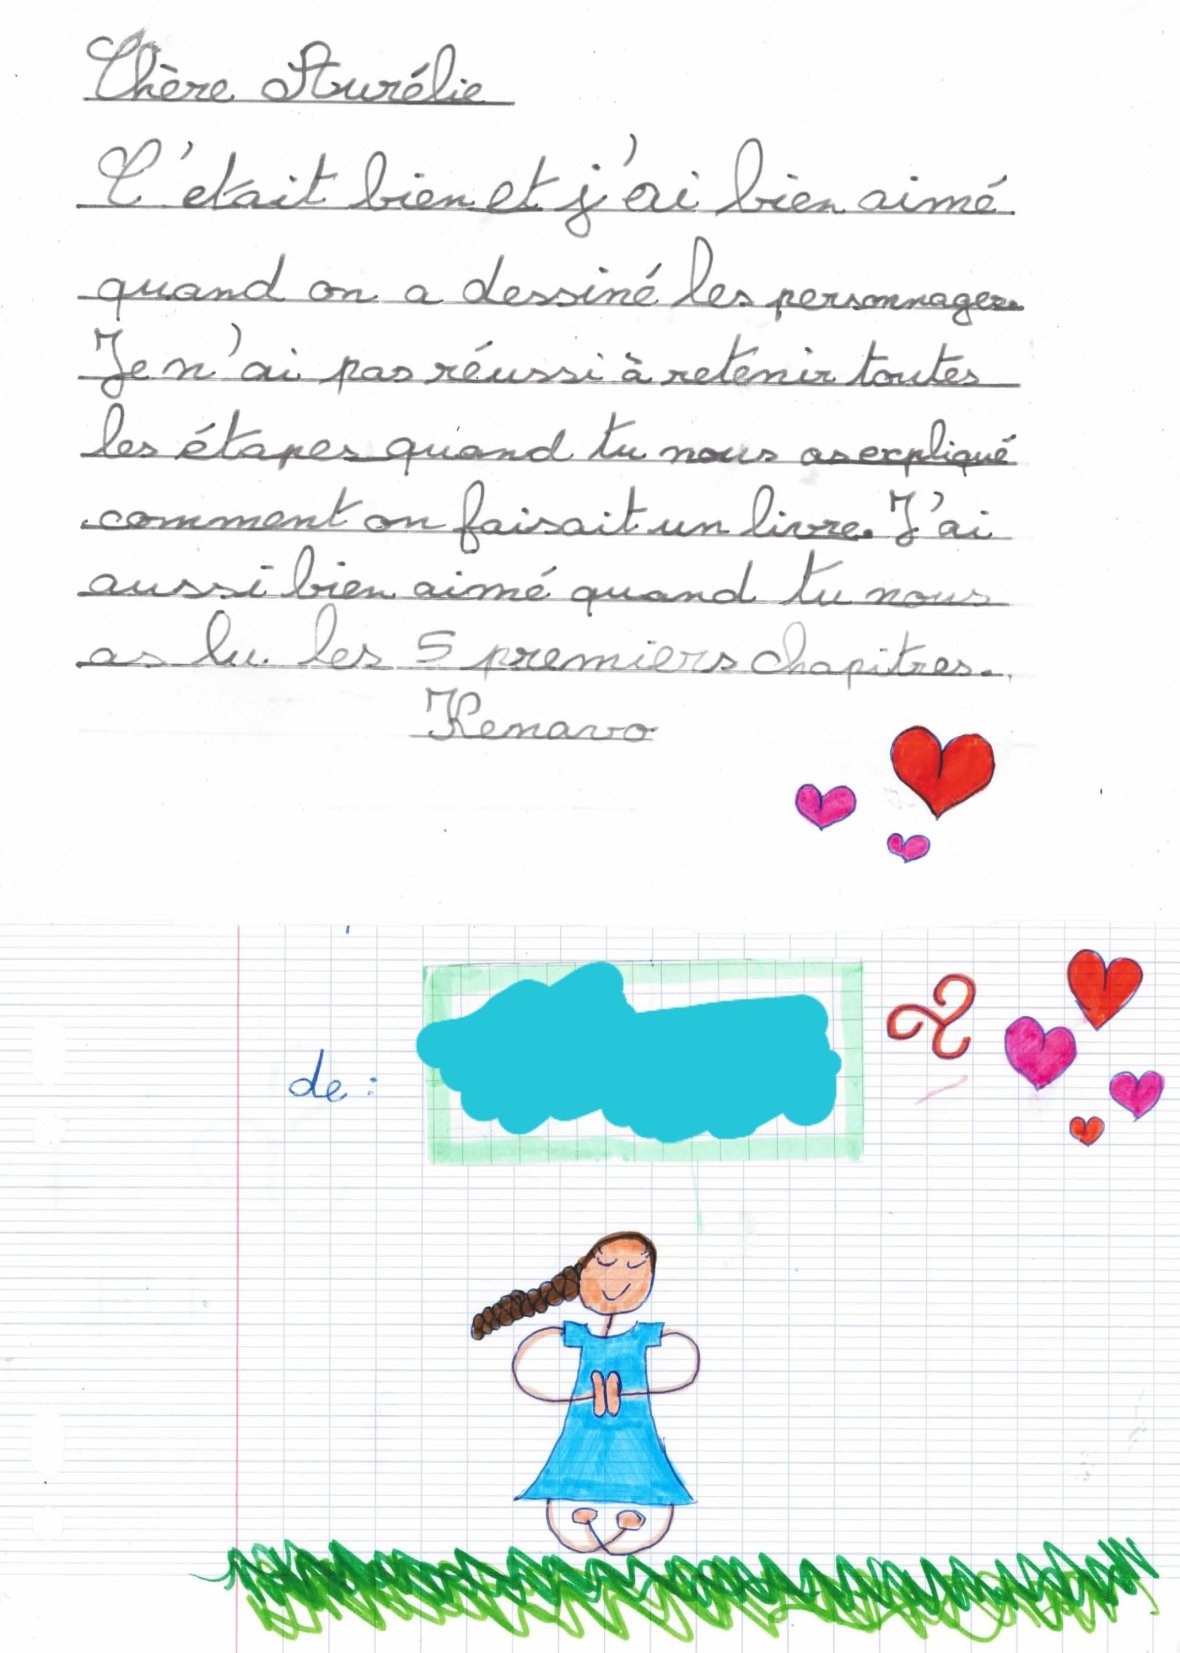 Chère Aurélie
C'etait bien et j'ai bien aimé
quand on a dessiné les personnages.
Je n'ai pas réussi à retenir toutes
les étapes quand tu nous as expliqué
comment on faisait un livre. J'ai
aussi bien aimé quand tu nous
as lu les 5 premiers chapitres.
Kenavo
de :